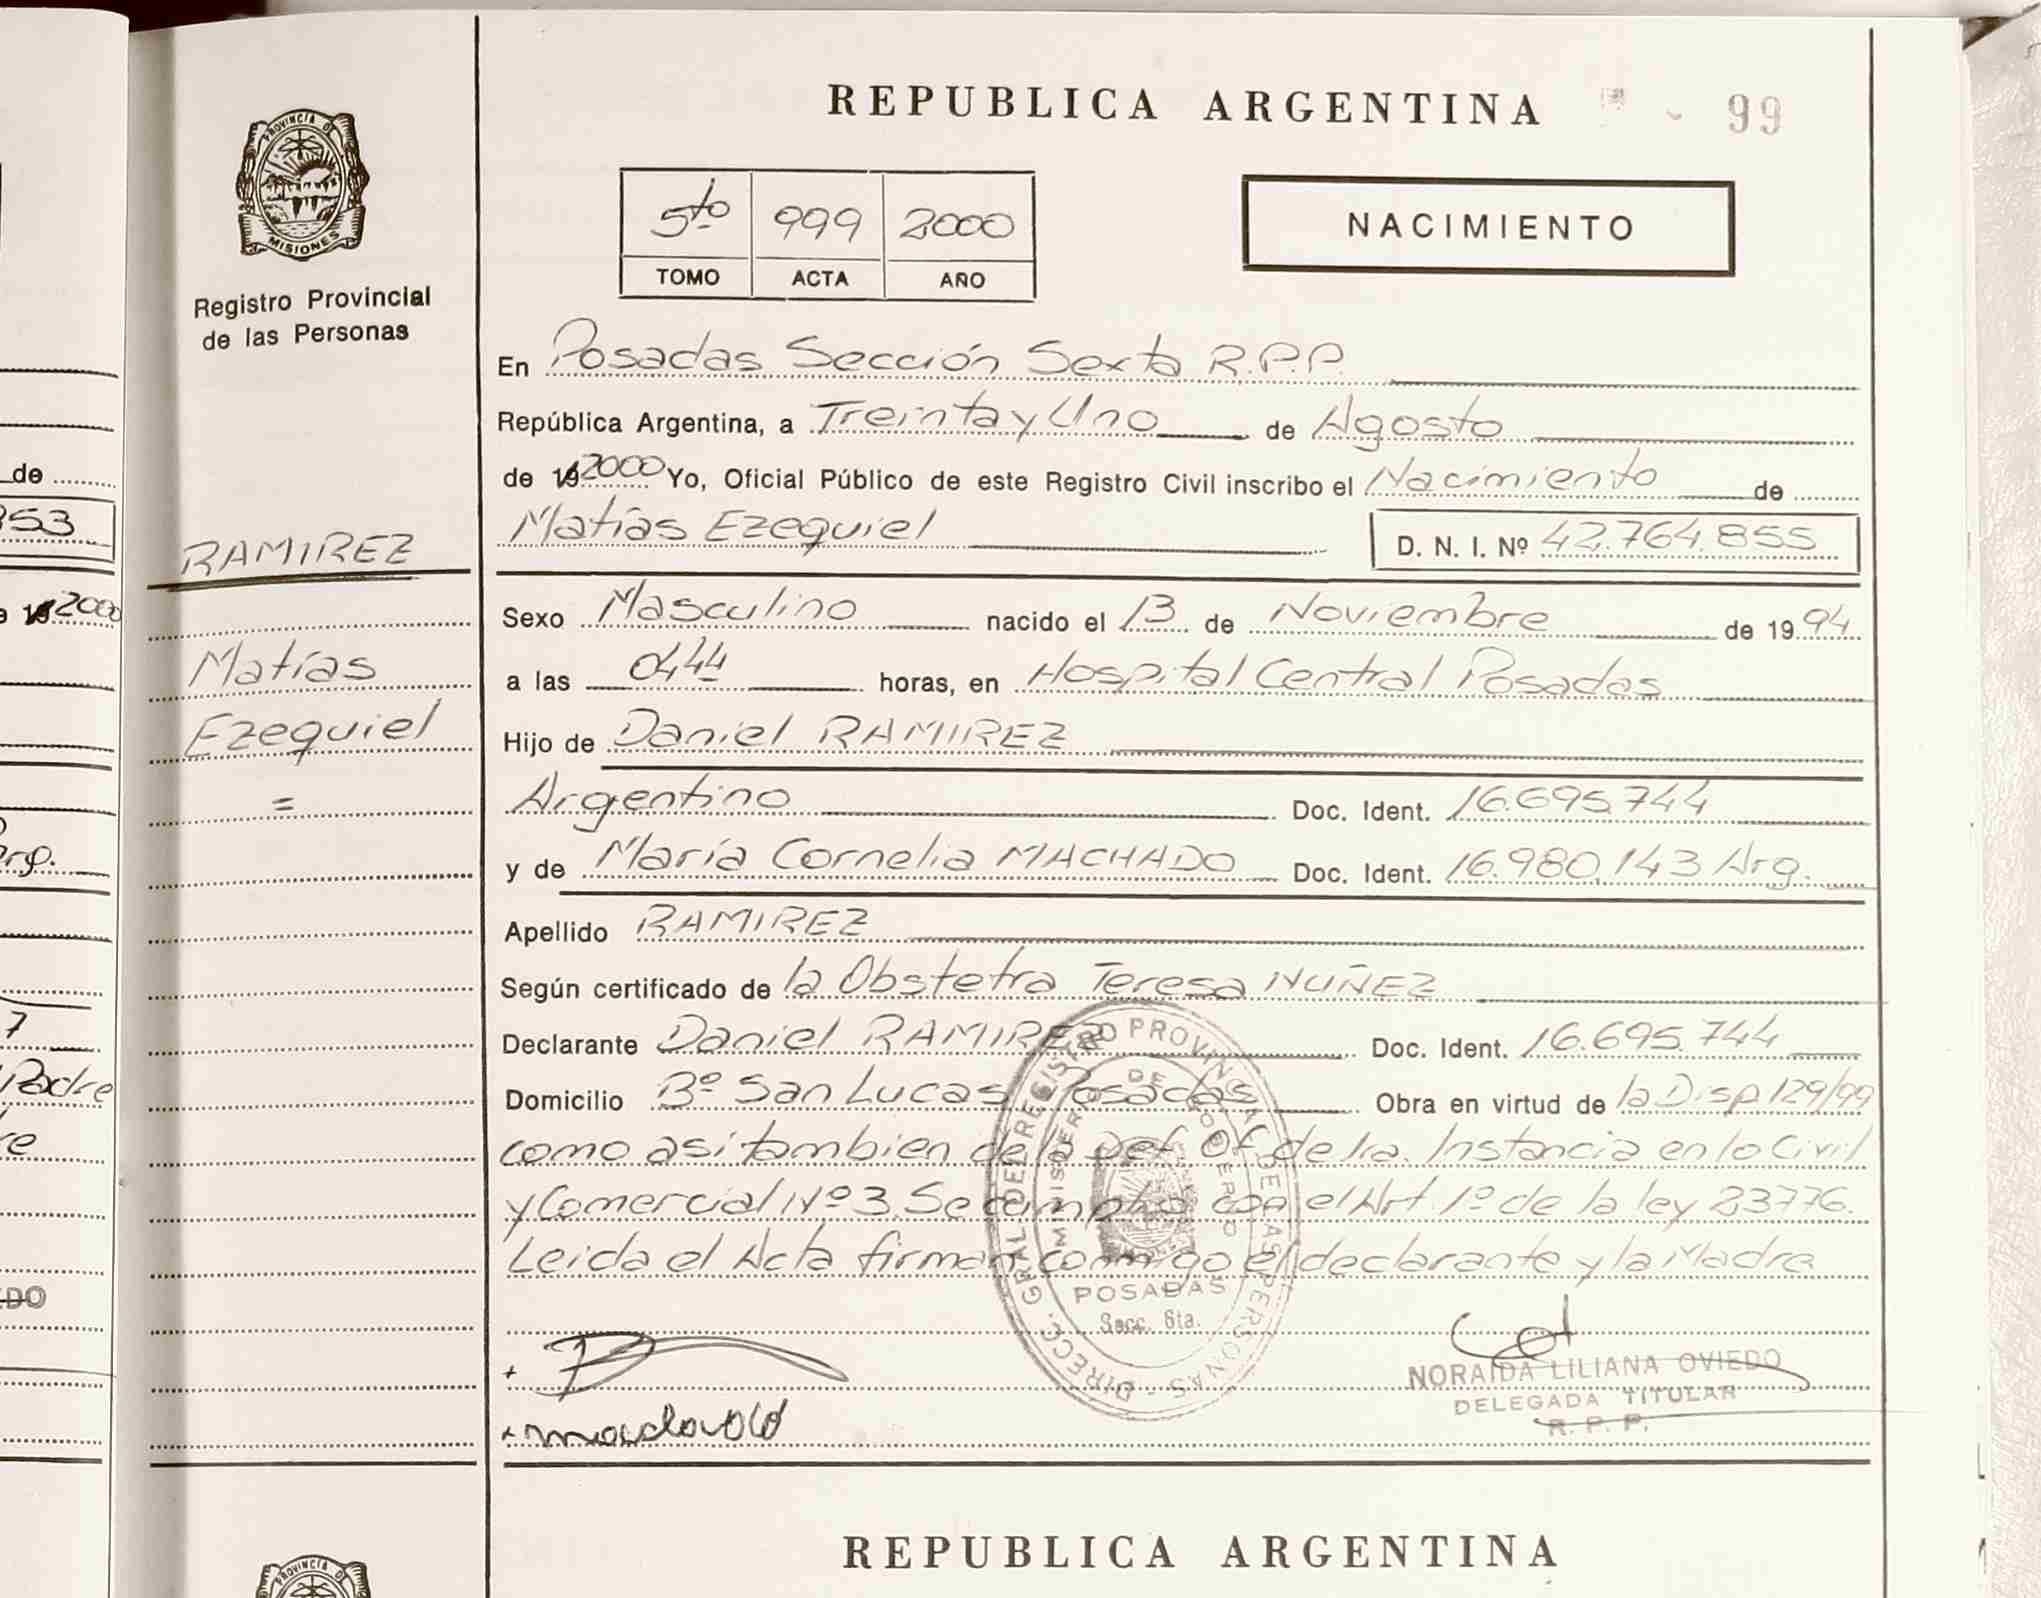 REPUBLICA ARGENTINA
99
PROVINCIA D
MISIONES
Registro Provincial
de las Personas
5to 999 2000
TOMO ACTA AÑO
NACIMIENTO
En Posadas Sección Sexta R.P.P.
República Argentina, a Treinta y Uno de Agosto
de 19 2000 Yo, Oficial Público de este Registro Civil inscribo el Nacimiento de
Matías Ezequiel D. N. I. Nº 42.764.855
RAMIREZ
Matías
Ezequiel
=
Sexo Masculino nacido el 13 de Noviembre de 19 94
a las 0444 horas, en Hospital Central Posadas
Hijo de Daniel RAMIREZ
Argentino Doc. Ident. 16.695.744
y de María Cornelia MACHADO Doc. Ident. 16.980.143 Arg.
Apellido RAMIREZ
Según certificado de la Obstetra Teresa NUÑEZ
Declarante Daniel RAMIREZ Doc. Ident. 16.695.744
Domicilio Bº San Lucas Posadas Obra en virtud de la Disp 129/99
como asi tambien de la Def. Of. de 1ra. Instancia en lo Civil
y Comercial Nº 3. Se cumplió con el Art. 1º de la ley 23776.
Leida el Acta firman conmigo el declarante y la Madre
DIRECC. GRAL. DEL REGISTRO PROVINCIAL DE LAS PERSONAS
MINISTERIO DE GOBIERNO
POSADAS
Secc. 6ta.
NORAIDA LILIANA OVIEDO
DELEGADA TITULAR
R. P. P.
REPUBLICA ARGENTINA
PROVINCIA D
de
353
2000
Arg.
7
Padre
re
EDO